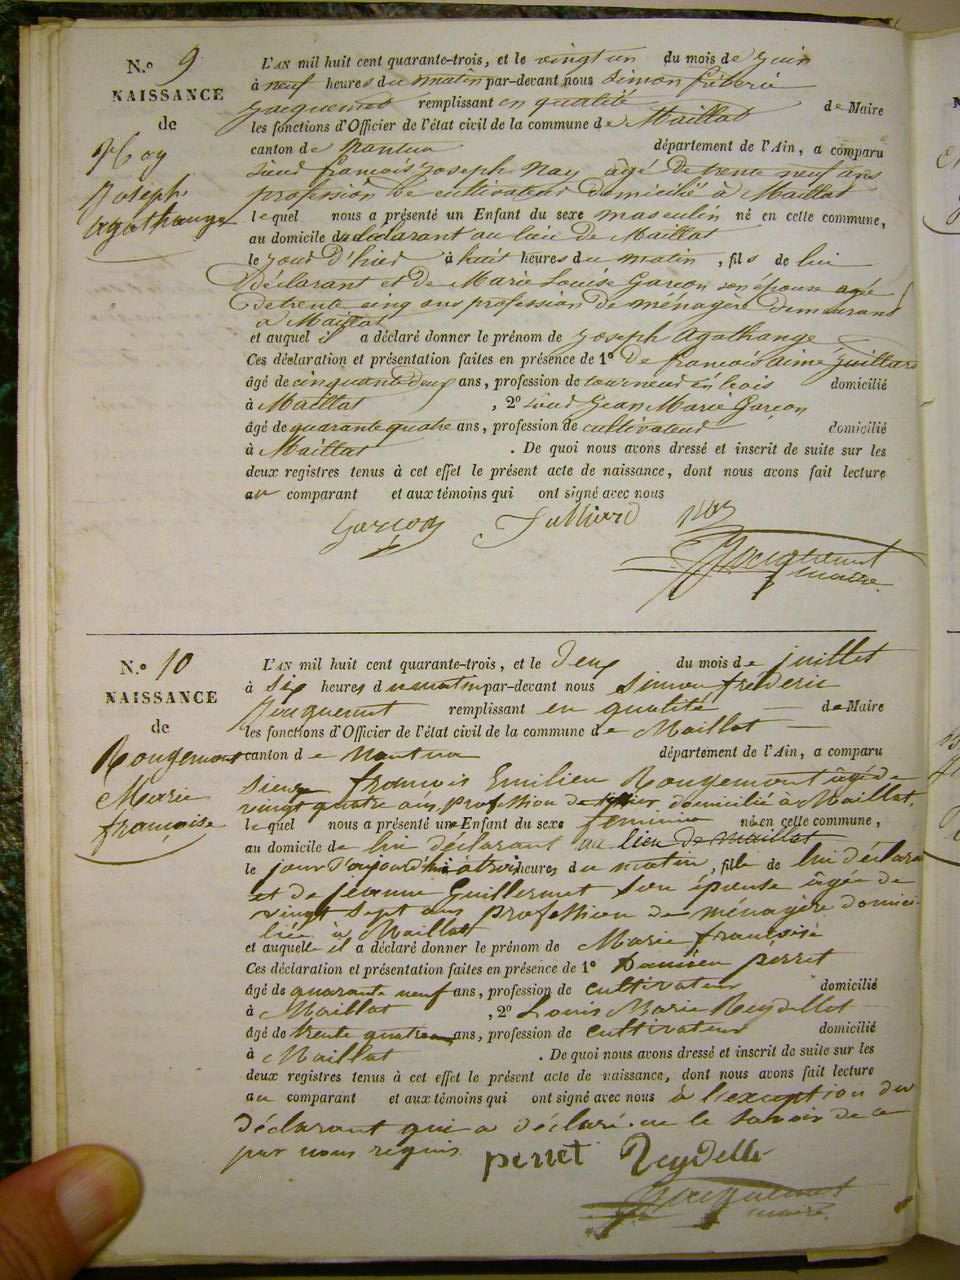 N.º 9
NAISSANCE
de
Nay
Joseph
agathange
L'AN mil huit cent quarante-trois, et le vingt un du mois de juin
à neuf heures du matin par-devant nous Simon fréderic
Jacquemet remplissant en qualité de Maire
les fonctions d'Officier de l'état civil de la commune de Maillat
canton de nantua département de l'Ain, a comparu
sieur françois joseph Nay âgé de trente neuf ans
profession de cultivateur domicilié à Maillat
lequel nous a présenté un Enfant du sexe masculin né en cette commune,
au domicile du déclarant au lieu de Maillat
le jour d'hier à huit heures du matin, fils de lui
déclarant et de Marie Louise Garçon son épouse agée
de trente cinq ans profession de ménagère demeurant
à Maillat
et auquel il a déclaré donner le prénom de joseph Agathange
Ces déclaration et présentation faites en présence de 1º De françois aimé juillard
âgé de cinquante deux ans, profession de tourneur en bois domicilié
à Maillat, 2º sieur Jean Marie Garçon
âgé de quarante quatre ans, profession de cultivateur domicilié
à Maillat. De quoi nous avons dressé et inscrit de suite sur les
deux registres tenus à cet effet le présent acte de naissance, dont nous avons fait lecture
au comparant et aux témoins qui ont signé avec nous
Garçon Julliard Nay
Jacquemet
maire
N.º 10
NAISSANCE
de
Rougemont
Marie
françoise
L'AN mil huit cent quarante-trois, et le deux du mois de juillet
à six heures du matin par-devant nous simon frédéric
Jacquemet remplissant en qualité de Maire
les fonctions d'Officier de l'état civil de la commune de Maillat
canton de Nantua département de l'Ain, a comparu
sieur françois Emilien Rougemont âgé de
vingt quatre ans, profession de domicilié à Maillat,
lequel nous a présenté une Enfant du sexe féminin née en cette commune,
au domicile de lui déclarant au lieu de Maillat
le jour d'aujourd'hui à trois heures du matin, fille de lui déclarant
et de jeanne Guillermet son épouse âgée de
vingt sept ans profession de ménagère domici-
liée à Maillat
et auquelle il a déclaré donner le prénom de Marie françoise
Ces déclaration et présentation faites en présence de 1º Damien perret
âgé de quarante neuf ans, profession de cultivateur domicilié
à Maillat, 2º Louis Marie Reydellet
âgé de trente quatre ans, profession de cultivateur domicilié
à Maillat. De quoi nous avons dressé et inscrit de suite sur les
deux registres tenus à cet effet le présent acte de naissance, dont nous avons fait lecture
au comparant et aux témoins qui ont signé avec nous à l'exception du
déclarant qui a déclaré ne le savoir de ce
par nous requis.
perret Reydellet
Jacquemet
maire.